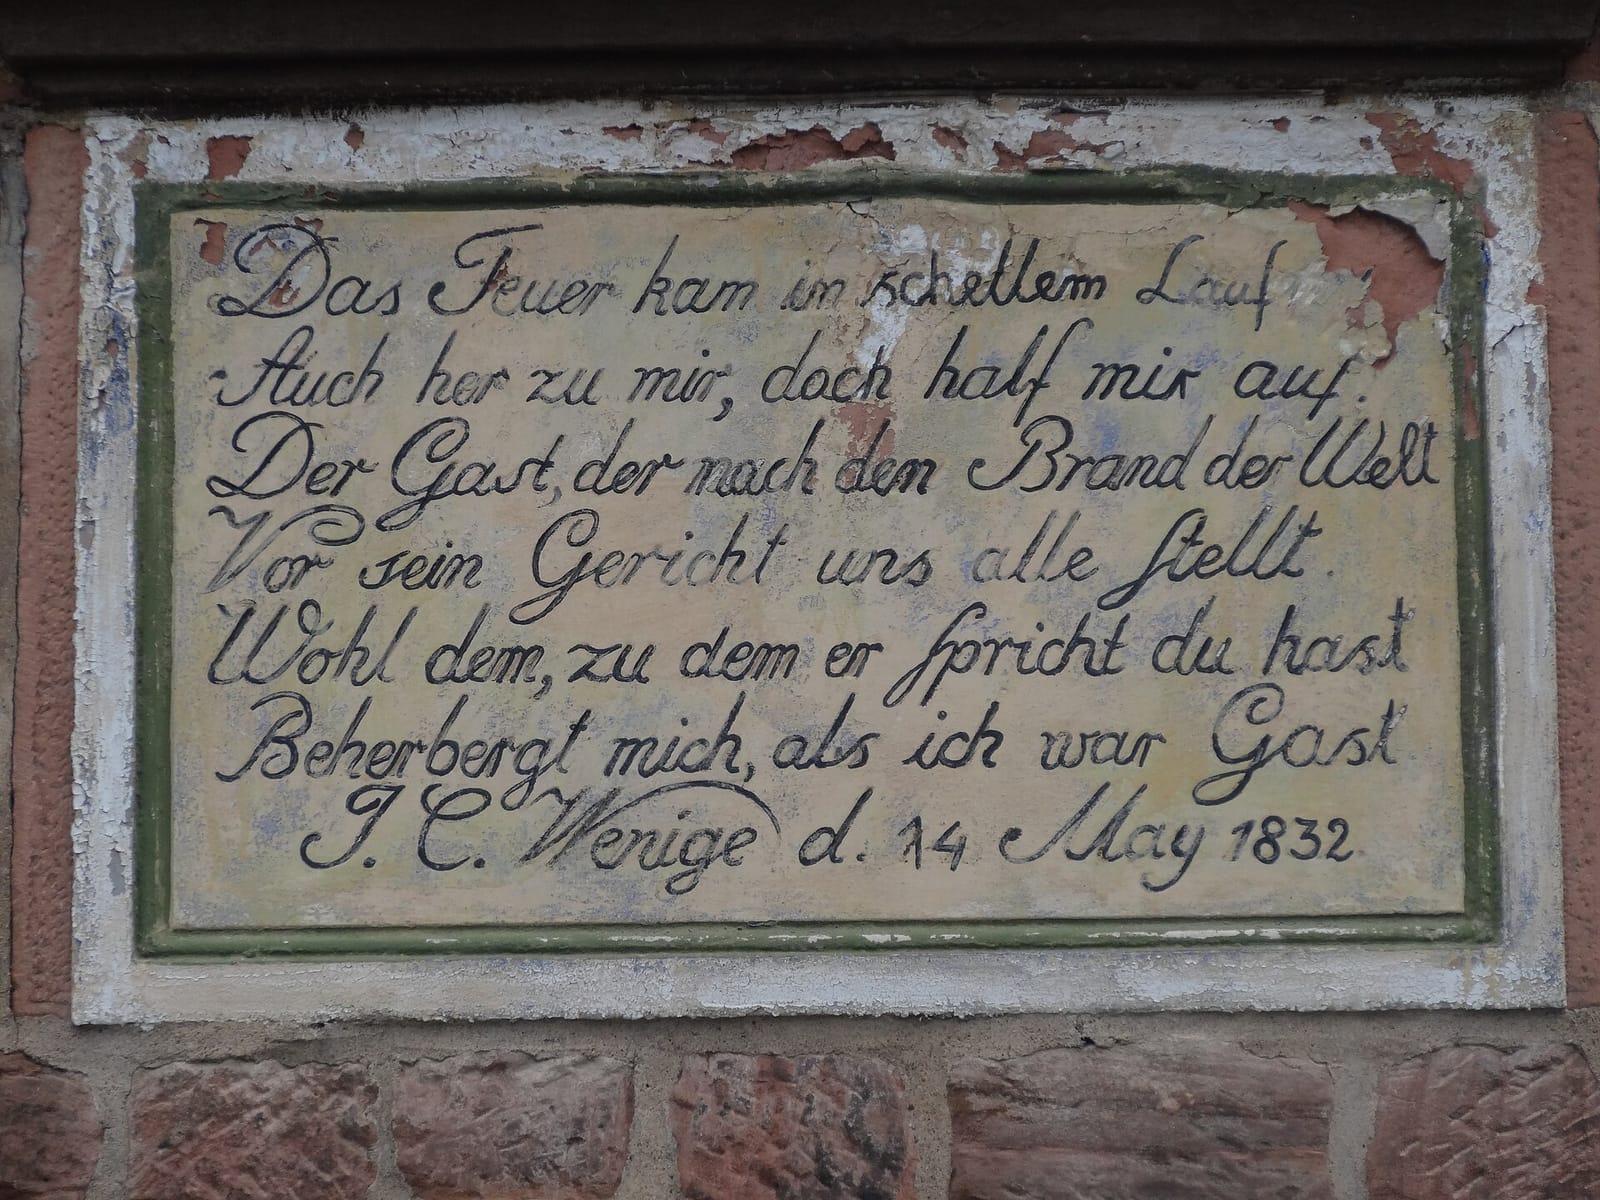 Das Feuer kam im schetlem Lauf
Auch her zu mir, doch half mir auf.
Der Gast, der nach dem Brand der Welt
Vor sein Gericht uns alle stellt.
Wohl dem, zu dem er spricht du hast
Beherbergt mich, als ich war Gast
J. C. Wenige d. 14 May 1832.